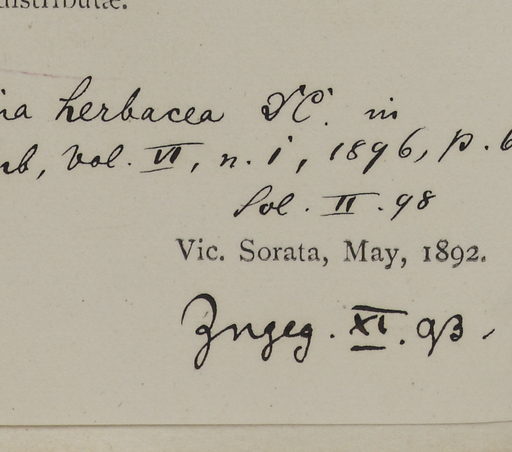 distributæ.
herbacea DC. in
Vol. VI, n. 1, 1896, p.
Sol. II. 98
Vic. Sorata, May, 1892.
XI. 93.